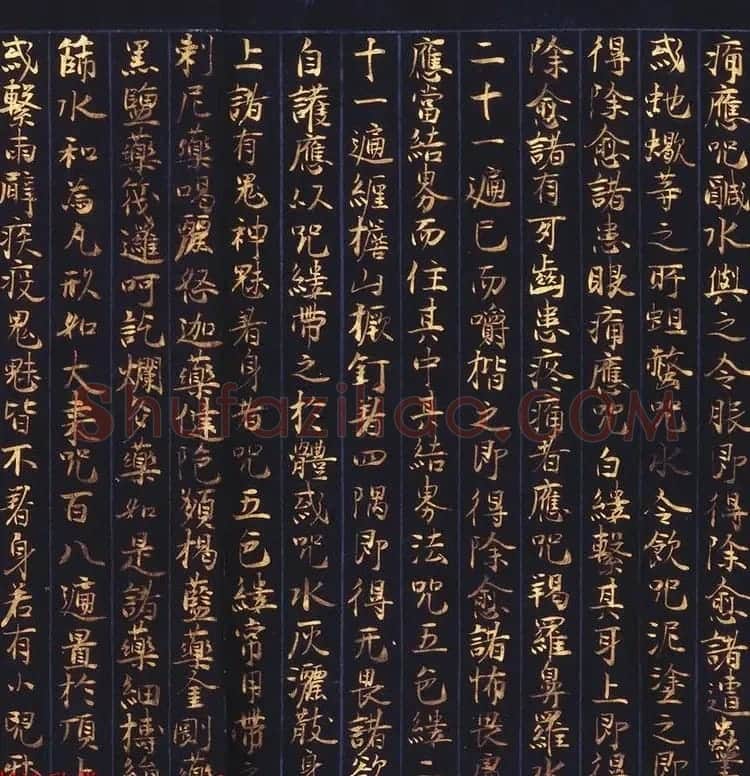 痛應呪鹹水與之令服即得除愈諸遭
或虵蠍等之所蛆螫呪水令飲呪泥塗之即
得除愈諸患眼痛應呪白縷繫其耳上即得
除愈諸有牙齒患疼痛者應呪羯羅鼻羅
二十一遍已而嚼揩之即得除愈諸怖畏
應當結界而住其中其結界法呪五色縷二
十一遍纏檐山橛釘著四隅即得无畏諸欲
自護應以呪縷帶之於體或呪水灰灑散身
上諸有鬼神魅著身者呪五色縷常用帶之
剌尼藥喝麗怒迦藥健陀頞楬藍藥金剛藥
黑鹽藥筏邏呵訖爛多藥如是諸藥細擣
篩水和為丸形如大棗呪百八遍置於頂上
或繫兩臂疾疫鬼魅皆不著身若有小兒
Shufaziliao.COM